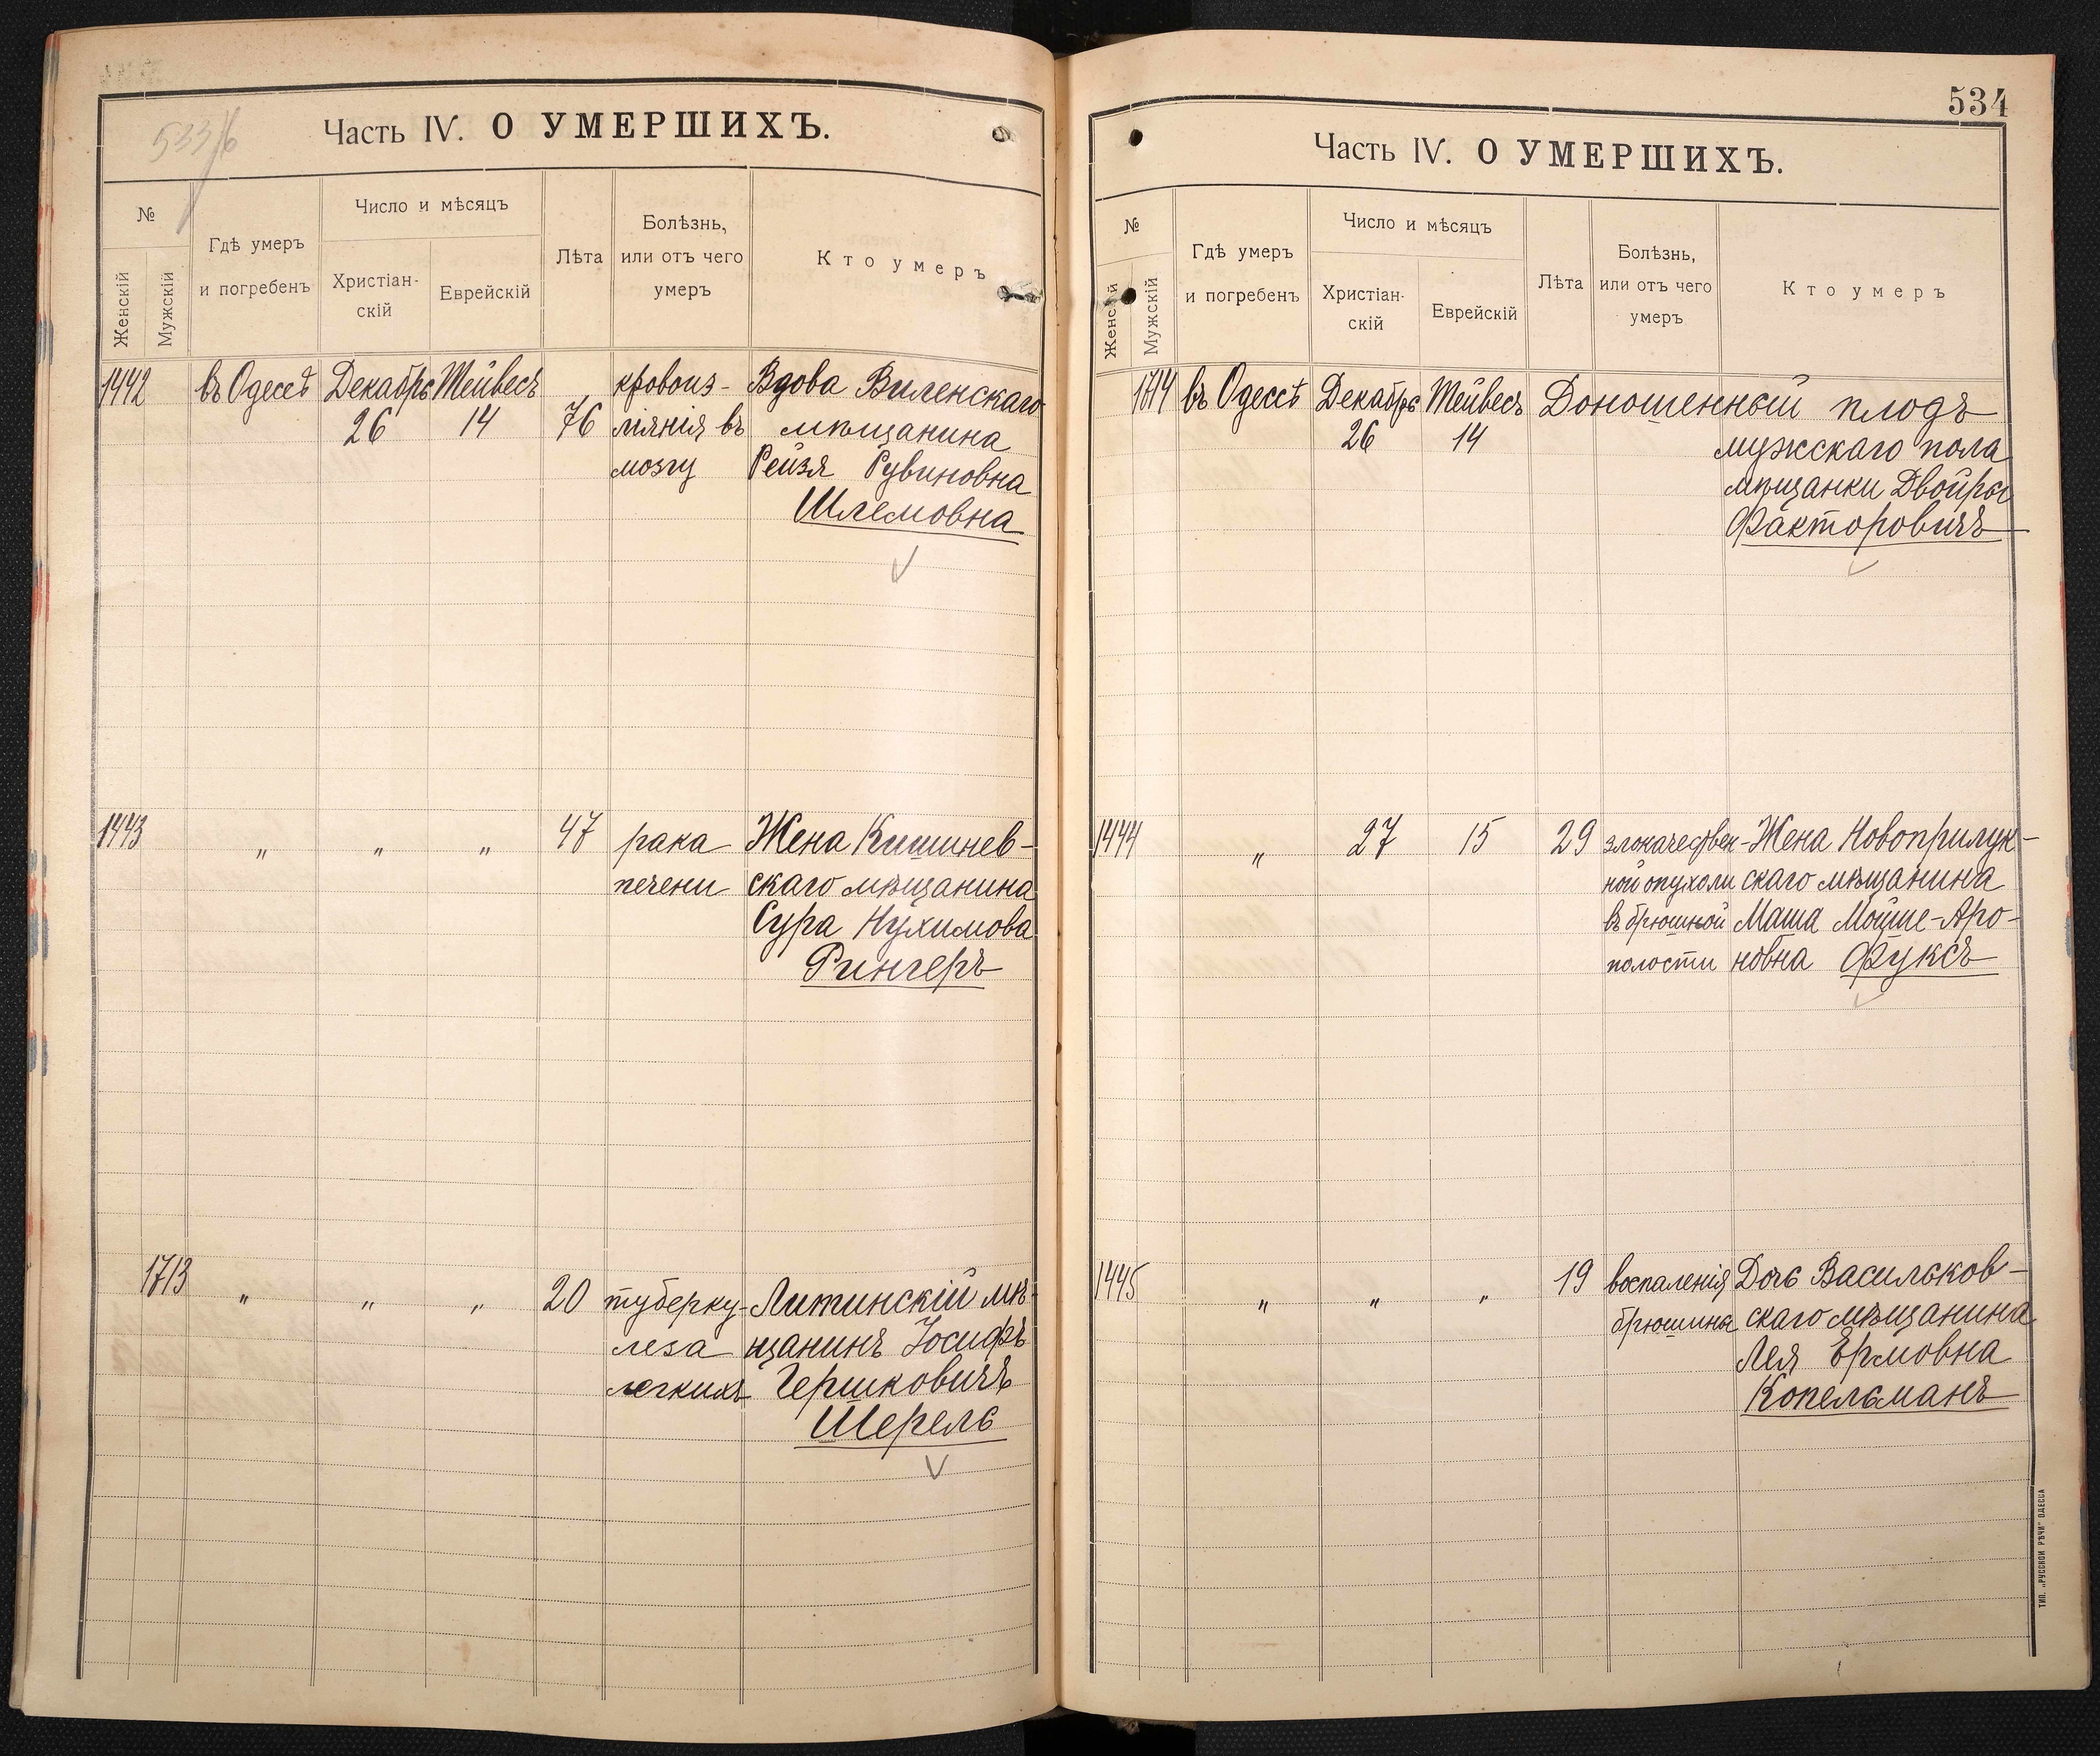 533/б
Часть IV. О УМЕРШИХЪ.
№
Женскій
Мужскій
Гдѣ умеръ
и погребенъ
Число и мѣсяцъ
Христіан-
скій
Еврейскій
Лѣта
Болѣзнь,
или отъ чего
умеръ
Кто умеръ
1442 въ Одессѣ Декабрь Тейвесъ кровоиз- Вдова Виленскаго
26 14 76 ліянія въ мѣщанина
мозгу Рейзя Рувиновна
Шлемовна
1443 „ „ „ 47 рака Жена Кишинев-
печени скаго мѣщанина
Сура Нухимова
Рингеръ
1713 „ „ „ 20 туберку- Литинскій мѣ-
леза щанинъ Іосифъ
легкихъ Гершковичъ
Шерель
534
Часть IV. О УМЕРШИХЪ.
№
Женскій
Мужскій
Гдѣ умеръ
и погребенъ
Число и мѣсяцъ
Христіан-
скій
Еврейскій
Лѣта
Болѣзнь,
или отъ чего
умеръ
Кто умеръ
въ Одессѣ Декабрь Тейвесъ Доношенный плодъ
26 14 мужскаго пола
мѣщанки Двойры
Факторовичъ
1444 „ 27 15 29 злокачествен- Жена Новоприлук-
ной опухоли скаго мѣщанина
въ брюшной Маша Мойше-Аро-
полости новна Фуксъ
1445 „ „ „ 19 воспаленія Дочь Васильков-
брюшины скаго мѣщанина
Лея Ермовна
Копельманъ
ТИП. „РУССКОЙ РѢЧИ" ОДЕССА